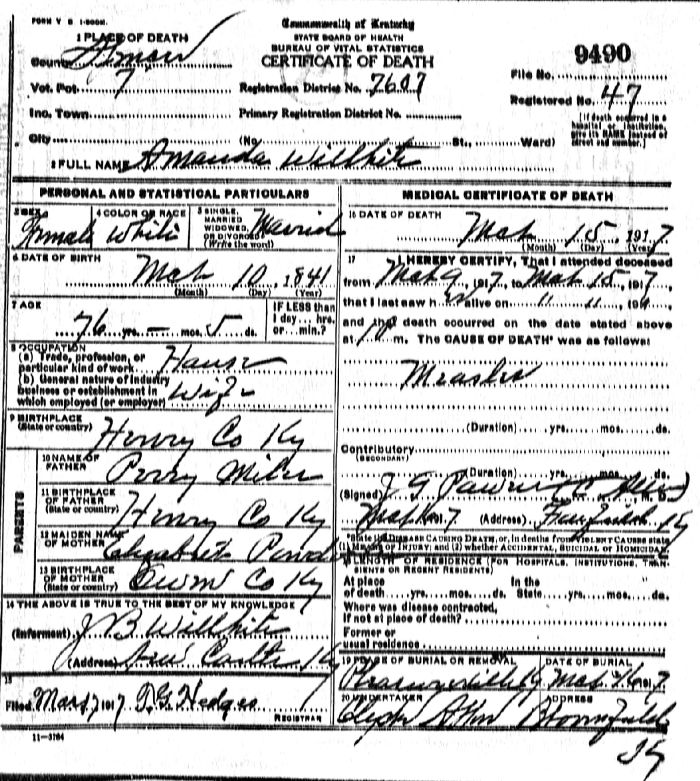 FORM V S 1-500M.
Commonwealth of Kentucky
STATE BOARD OF HEALTH
BUREAU OF VITAL STATISTICS
CERTIFICATE OF DEATH
1 PLACE OF DEATH
County
Vot. Pct. 7
Inc. Town
City (No. St., Ward)
Registration District No. 7607
Primary Registration District No.
9490
File No.
Registered No. 47
[If death occurred in a hospital or institution, give its NAME instead of street and number.]
2 FULL NAME Amanda Wilhite
PERSONAL AND STATISTICAL PARTICULARS
3 SEX Female
4 COLOR OR RACE White
5 SINGLE, MARRIED WIDOWED, OR DIVORCED (Write the word) Married
6 DATE OF BIRTH
Mch 10, 1841
(Month) (Day) (Year)
7 AGE
76 yrs. – mos. 5 ds.
IF LESS than 1 day... hrs. or... min.?
8 OCCUPATION
(a) Trade, profession, or particular kind of work House
(b) General nature of industry business or establishment in which employed (or employer) Wife
9 BIRTHPLACE
(State or country) Henry Co Ky
PARENTS
10 NAME OF FATHER Perry Miles
11 BIRTHPLACE OF FATHER
(State or country) Henry Co Ky
12 MAIDEN NAME OF MOTHER Elizabeth
13 BIRTHPLACE OF MOTHER
(State or country) Owen Co Ky
14 THE ABOVE IS TRUE TO THE BEST OF MY KNOWLEDGE
(Informant) J B Wilhite
(Address) New Castle Ky
15
Filed 1917 T. G. Hedges
REGISTRAR
11-3784
MEDICAL CERTIFICATE OF DEATH
16 DATE OF DEATH
Mch 15 1917
(Month) (Day) (Year)
17 I HEREBY CERTIFY, That I attended deceased
from Mch 9, 1917, to Mch 15, 1917,
that I last saw her alive on " " 191
and that death occurred on the date stated above
at m. The CAUSE OF DEATH* was as follows:
Measles
(Duration) yrs. mos. ds.
Contributory
(SECONDARY)
(Duration) yrs. mos. ds.
(Signed) J G M. D.
(Address) Fairfield Ky
*State the DISEASE CAUSING DEATH, or, in deaths from VIOLENT CAUSES state
(1) MEANS OF INJURY; and (2) whether ACCIDENTAL, SUICIDAL or HOMICIDAL.
18 LENGTH OF RESIDENCE (FOR HOSPITALS, INSTITUTIONS, TRANSIENTS OR RECENT RESIDENTS)
At place of death yrs. mos. ds. In the State yrs. mos. ds.
Where was disease contracted,
if not at place of death?
Former or
usual residence
19 PLACE OF BURIAL OR REMOVAL DATE OF BURIAL
Ky Mch 16 1917
20 UNDERTAKER ADDRESS
Bloomfield
Ky